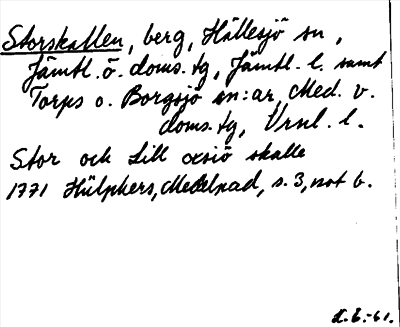 Storskallen, berg, Hällesjö sn,
Jämtl. ö. doms.tg, Jämtl. l. samt
Torps o. Borgsjö sn:ar, Med. v.
doms.tg, Vrnl. l.
Stor och Lill oxsiö skalle
1771 Hülphers, Medelpad, s. 3, not b.
-61.